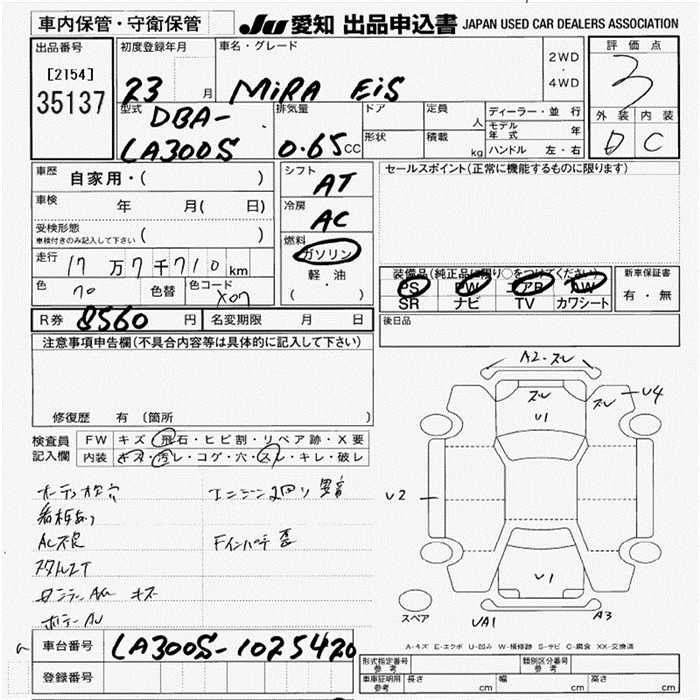 車内保管・守衛保管
JU 愛知 出品申込書 JAPAN USED CAR DEALERS ASSOCIATION
出品番号
[2154]
35137
初度登録年月
23 月
車名・グレード
MiRA EiS
2WD
・
4WD
評価点
3
外装 内装
D C
型式
DBA-
LA300S
排気量
0.65 CC
ドア
形状
定員 人
積載 kg
ディーラー・並行
モデル年式 年
ハンドル 左・右
車歴 自家用・( )
車検 年 月( 日)
受検形態
車検付きのみ記入して下さい ( )
走行 17万7千710 km
色 70 色替 色コード X07
シフト
AT
冷房
AC
燃料
ガソリン
軽・油
( ・ )
セールスポイント(正常に機能するものに限ります)
装備品(純正品に限り○をつけてください)
PS PW エアB AW
SR ナビ TV カワシート
新車保証書
有・無
R券 8560 円 名変期限 月 日
後日品
注意事項申告欄(不具合内容等は具体的に記入して下さい)
修復歴 有 〔箇所
検査員
記入欄
FW キズ・飛石・ヒビ割・リペア跡・X要
内装 キズ・汚レ・コゲ・穴・スレ・キレ・破レ
A2・スレ
スレ
U1
スレ
U4
U2
U1
UA1
A3
スペア
A-キズ E-エクボ U-凹み W-補修跡 S-サビ C-腐食 XX-交換済
AC不良
車台番号 LA300S-1025420
登録番号
形式指定番号
参考
類別区分番号
参考
車庫証明用
参考
長さ cm 幅 cm 高さ cm